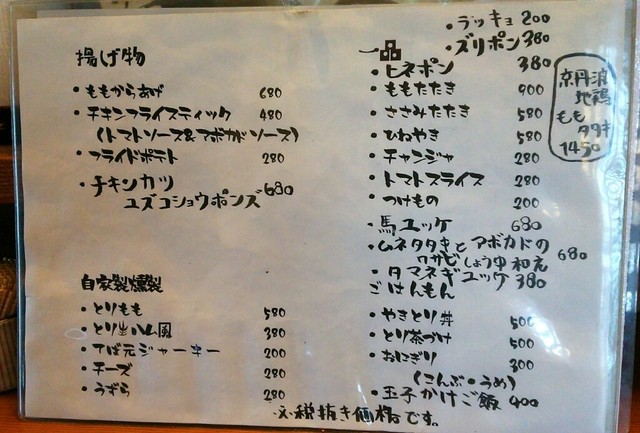 揚げ物
・ももからあげ 680
・チキンフライスティック 480
(トマトソース&アボカドソース)
・フライドポテト 280
・チキンカツ 680
ユズコショウポンズ
自家製燻製
・とりもも 580
・とり生ハム風 380
・てば元ジャーキー 200
・チーズ 280
・うずら 280
・ラッキョ 200
・ズリポン 380
一品
・ヒネポン 380
・ももたたき 900
・ささみたたき 580
・ひねやき 580
・チャンジャ 280
・トマトスライス 280
・つけもの 200
・馬ユッケ 680
・ムネタタキとアボカドの
ワサビしょうゆ和え 680
・タマネギユッケ 380
ごはんもん
・やきとり丼 500
・とり茶づけ 500
・おにぎり 300
(こんぶ・うめ)
・玉子かけご飯 400
※税抜き価格です。
京丹波
地鶏
もも
タタキ
1450